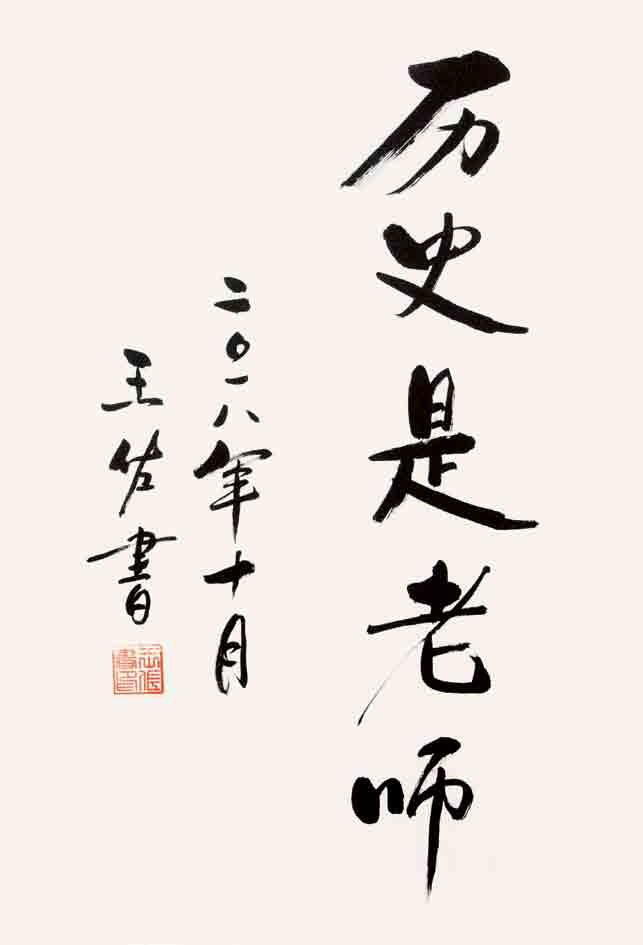 历史是老师
二〇一八年十月
王佐書